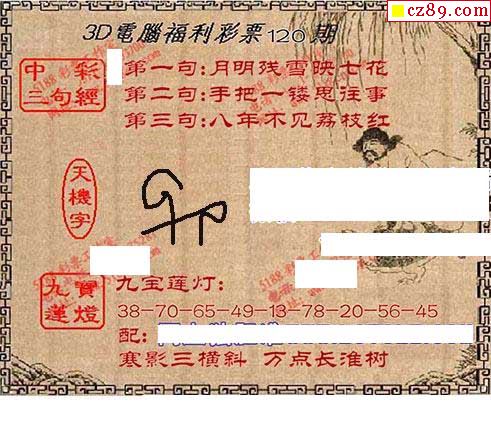 cz89.com
3D電腦福利彩票120期
中彩
三句經
第一句:月明残雪映七花
第二句:手把一镂思往事
第三句:八年不见荔枝红
天機字
九寶
蓮燈
九宝莲灯:
38-70-65-49-13-78-20-56-45
配:
寒影三横斜 万点长淮树